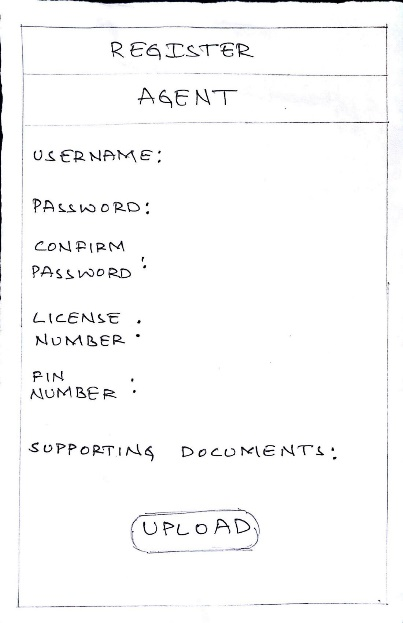 REGISTER
AGENT
USERNAME:
PASSWORD:
CONFIRM
PASSWORD :
LICENSE
NUMBER :
PIN
NUMBER :
SUPPORTING DOCUMENTS:
UPLOAD